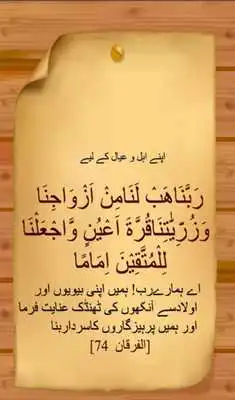 اپنے اہل و عیال کے لیے
رَبَّنَاهَبْ لَنَامِنْ اَزْوَاجِنَا
وَذُرِّيّٰتِنَاقُرَّةَ اَعْيُنٍ وَّاجْعَلْنَا
لِلْمُتَّقِيْنَ اِمَامًا
اے ہمارےرب! ہمیں اپنی بیویوں اور
اولادسے آنکھوں کی ٹھنڈک عنایت فرما
اور ہمیں پرہیزگاروں کاسرداربنا
[الفرقان 74]